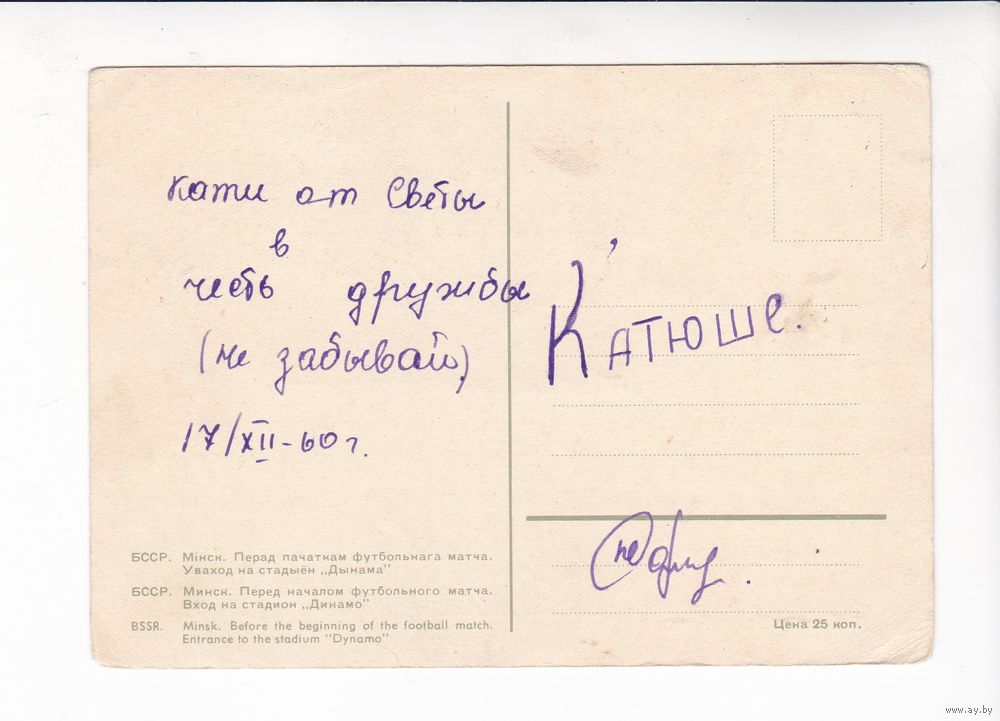 Кати от Светы
в
честь дружбы
(не забывай)
17/XII-60 г.
Катюше.
БССР. Мінск. Перад пачаткам футбольнага матча.
Уваход на стадыён „Дынама"
БССР. Минск. Перед началом футбольного матча.
Вход на стадион „Динамо"
BSSR. Minsk. Before the beginning of the football match.
Entrance to the stadium "Dynamo"
Цена 25 коп.
www.ay.by